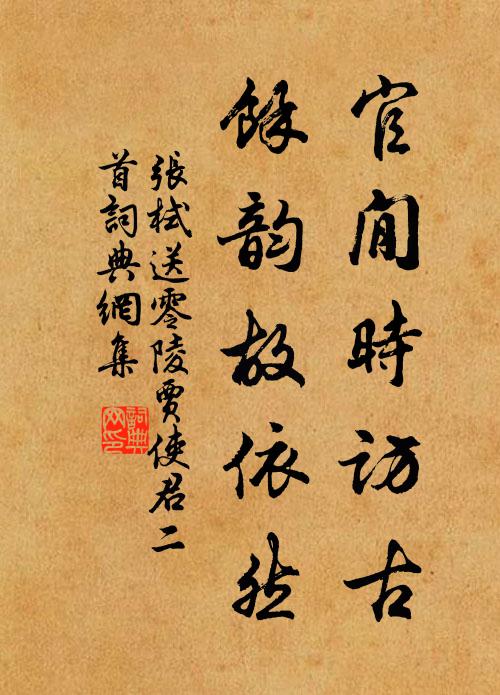 官閒時訪古
餘韵故依然
張栻送零陵賈使君二
首詞典網集
詞典
网印